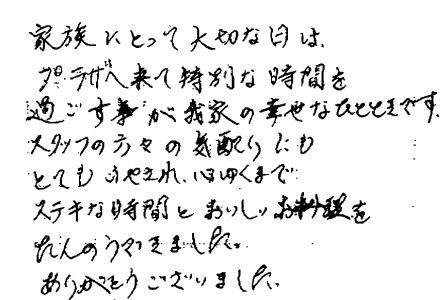 家族にとって大切な日は、
ラザへ来て特別な時間を
過ごす事が我家の幸せなひとときです。
スタッフの方々の気配りにも
とても いやされ、心ゆくまで
ステキな時間とおいしいお料理を
たんのうできました。
ありがとうございました。